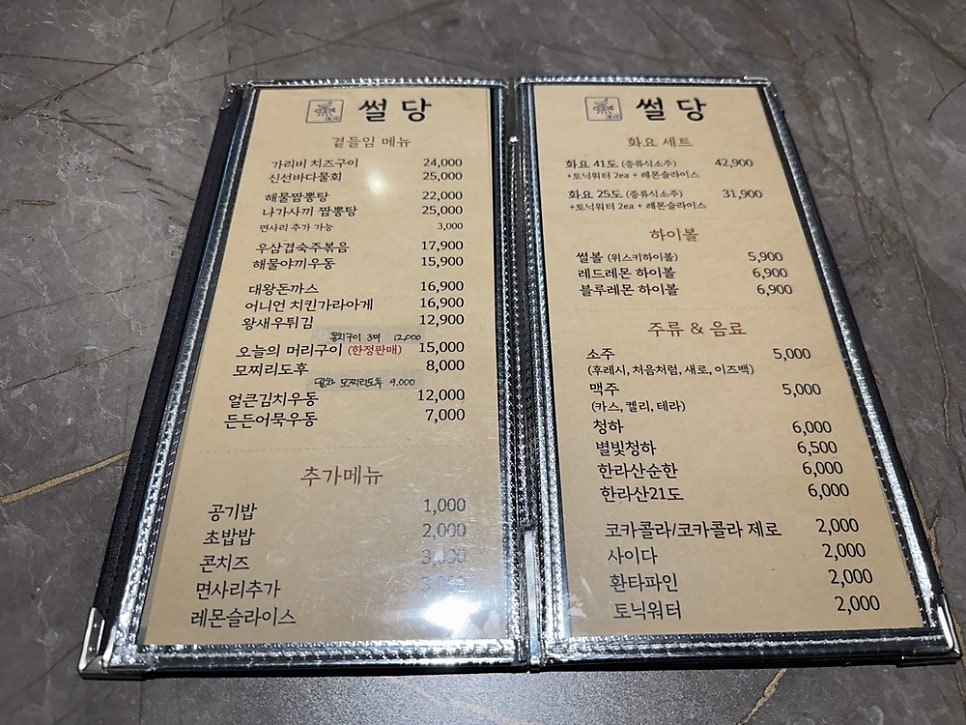 썰당
곁들임 메뉴
가리비 치즈구이 24,000
신선바다물회 25,000
해물짬뽕탕 22,000
나가사끼 짬뽕탕 25,000
면사리 추가 가능 3,000
우삼겹숙주볶음 17,900
해물야끼우동 15,900
대왕돈까스 16,900
어니언 치킨가라아게 16,900
왕새우튀김 12,900
꽁치구이 3마 12,000
오늘의 머리구이 (한정판매) 15,000
모찌리도후 8,000
모찌리도후 9,000
얼큰김치우동 12,000
든든어묵우동 7,000
추가메뉴
공기밥 1,000
초밥밥 2,000
콘치즈 3,000
면사리추가 3,000
레몬슬라이스
썰당
화요 세트
화요 41도 (증류식소주) 42,900
+토닉워터 2ea + 레몬슬라이스
화요 25도 (증류식소주) 31,900
+토닉워터 2ea + 레몬슬라이스
하이볼
썰볼 (위스키하이볼) 5,900
레드레몬 하이볼 6,900
블루레몬 하이볼 6,900
주류 & 음료
소주 5,000
(후레시, 처음처럼, 새로, 이즈백)
맥주 5,000
(카스, 켈리, 테라)
청하 6,000
별빛청하 6,500
한라산순한 6,000
한라산21도 6,000
코카콜라/코카콜라 제로 2,000
사이다 2,000
환타파인 2,000
토닉워터 2,000